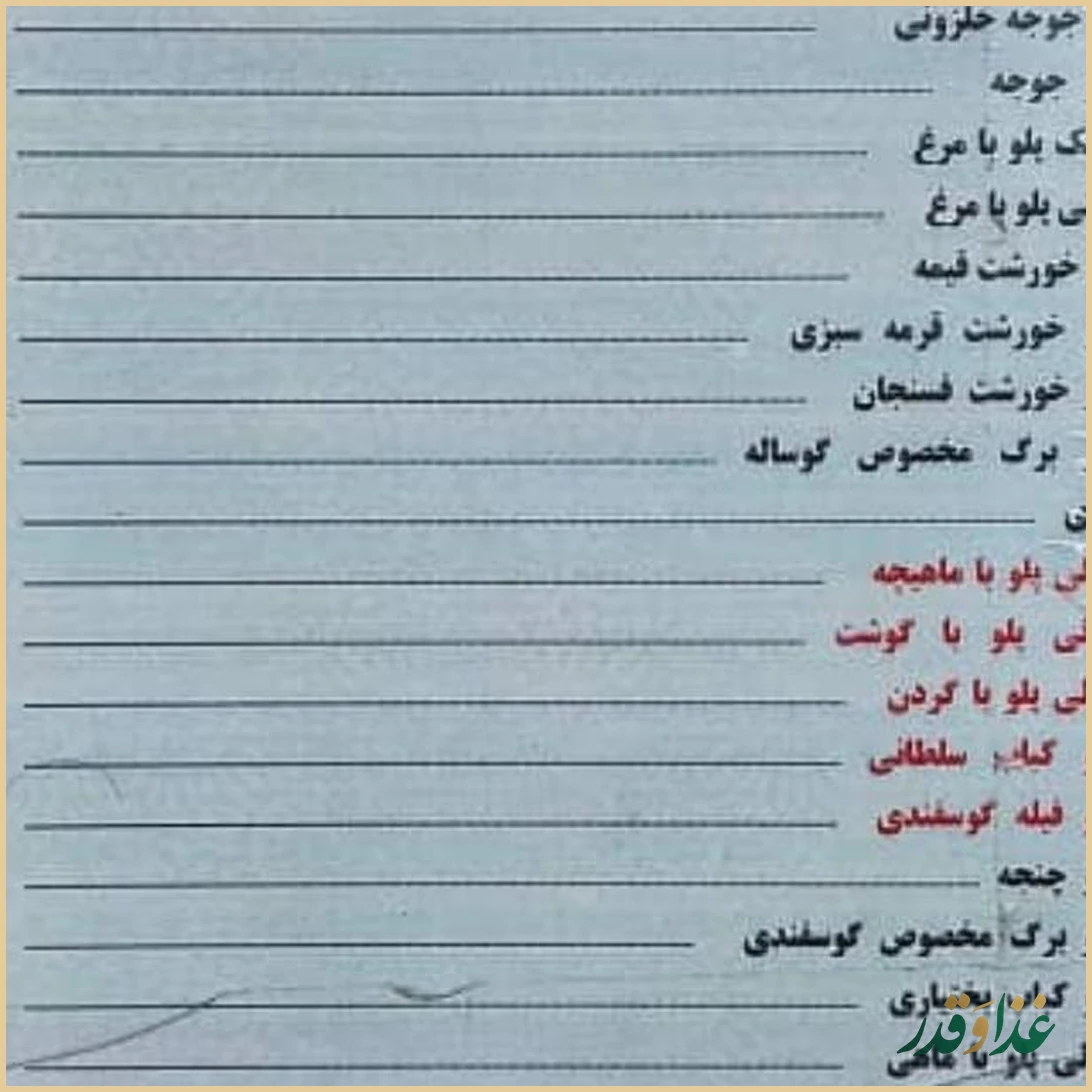 جوجه حلزونی
جوجه
پلو با مرغ
پلو با مرغ
خورشت قیمه
خورشت قرمه سبزی
خورشت فسنجان
برگ مخصوص گوساله
ی
پلو با ماهیچه
پلو با گوشت
پلو با گردن
کباب سلطانی
فیله گوسفندی
چنجه
برگ مخصوص گوسفندی
کباب بختیاری
پلو با ماهی
غذا وَ قدر